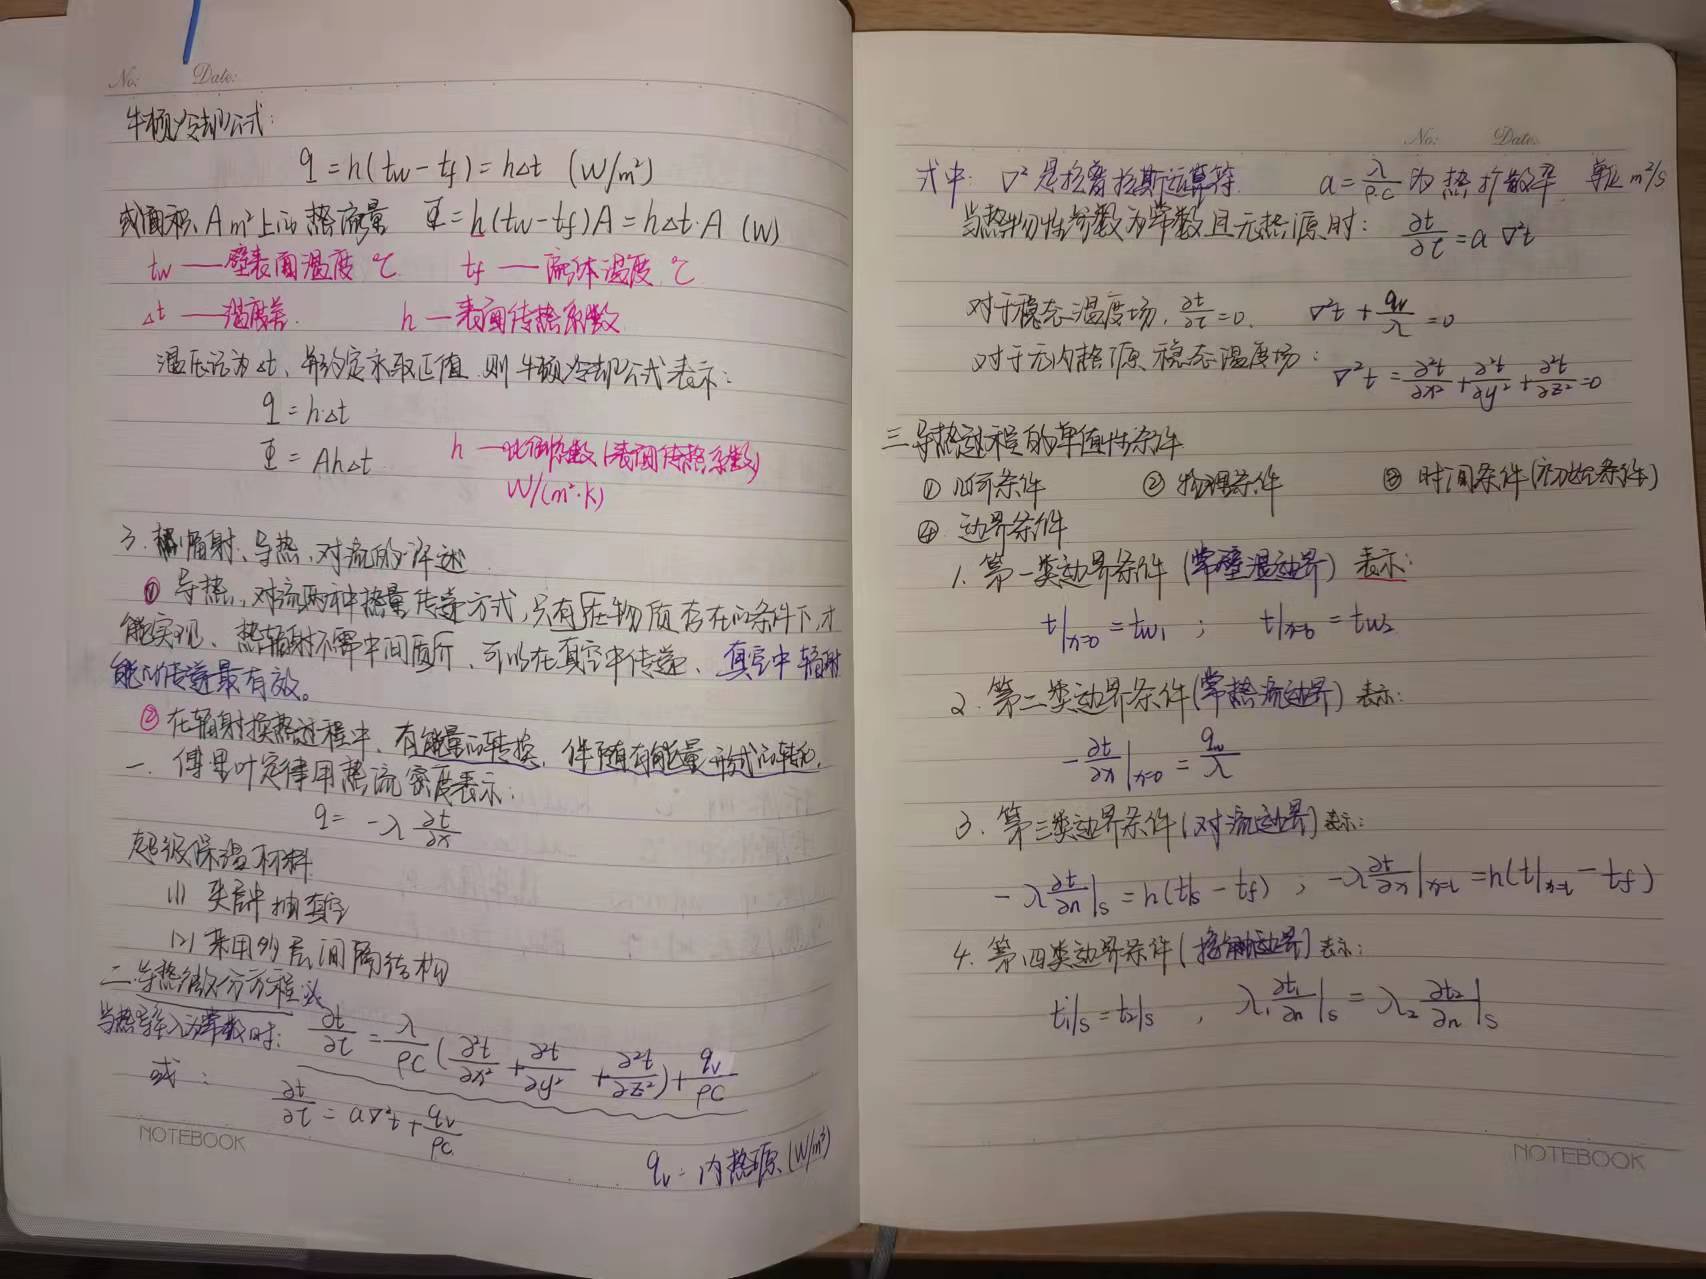 No:    Date:
牛顿冷却公式:
q = h(tw − tf) = hΔt (W/m²)
或面积 A m²上的热流量 Φ = h(tw − tf)A = hΔt·A (W)
tw —— 壁表面温度 ℃    tf —— 流体温度 ℃
Δt —— 温度差.    h — 表面传热系数
温压记为Δt, 并约定永取正值 则牛顿冷却公式表示:
q = hΔt
Φ = AhΔt    h — 比例系数(表面传热系数)
W/(m²·K)
3. 热辐射、导热、对流的评述
① 导热, 对流两种热量传递方式, 只有在物质存在的条件下, 才
能实现、热辐射不需中间介质, 可以在真空中传递、真空中辐射
能的传递最有效。
② 在辐射换热过程中, 有能量的转换, 伴随有能量形式的转化.
一. 傅里叶定律用热流密度表示:
q = −λ ∂t/∂x
超级保温材料
(1) 夹层中抽真空
(2) 采用多层间隔结构
二. 导热微分方程式
当热导率λ为常数时: ∂t/∂τ = λ/ρc (∂²t/∂x² + ∂²t/∂y² + ∂²t/∂z²) + qv/ρc
或: ∂t/∂τ = a∇²t + qv/ρc
qv: 内热源 (W/m³)
NOTEBOOK
No:    Date:
式中: ∇² 是拉普拉斯运算符.    a = λ/ρ·c 为热扩散率. 单位 m²/s
当热物性参数为常数且无热源时: ∂t/∂τ = a∇²t
对于稳态温度场, ∂t/∂τ = 0.    ∇²t + qv/λ = 0
对于无内热源 稳态温度场: ∇²t = ∂²t/∂x² + ∂²t/∂y² + ∂²t/∂z² = 0
三 导热过程的单值性条件
① 几何条件    ② 物理条件    ③ 时间条件(初始条件)
④ 边界条件
1. 第一类边界条件 (常壁温边界) 表示:
t|x=0 = tw₁ ;    t|x=δ = tw₂
2. 第二类边界条件(常热流边界) 表示:
−∂t/∂x|x=0 = qw/λ
3. 第三类边界条件(对流边界) 表示:
−λ ∂t/∂n|s = h(t|s − tf) ; −λ ∂t/∂x|x=L = h(t|x=L − tf)
4. 第四类边界条件(接触边界) 表示:
t₁|s = t₂|s , λ₁ ∂t₁/∂n|s = λ₂ ∂t₂/∂n|s
NOTEBOOK